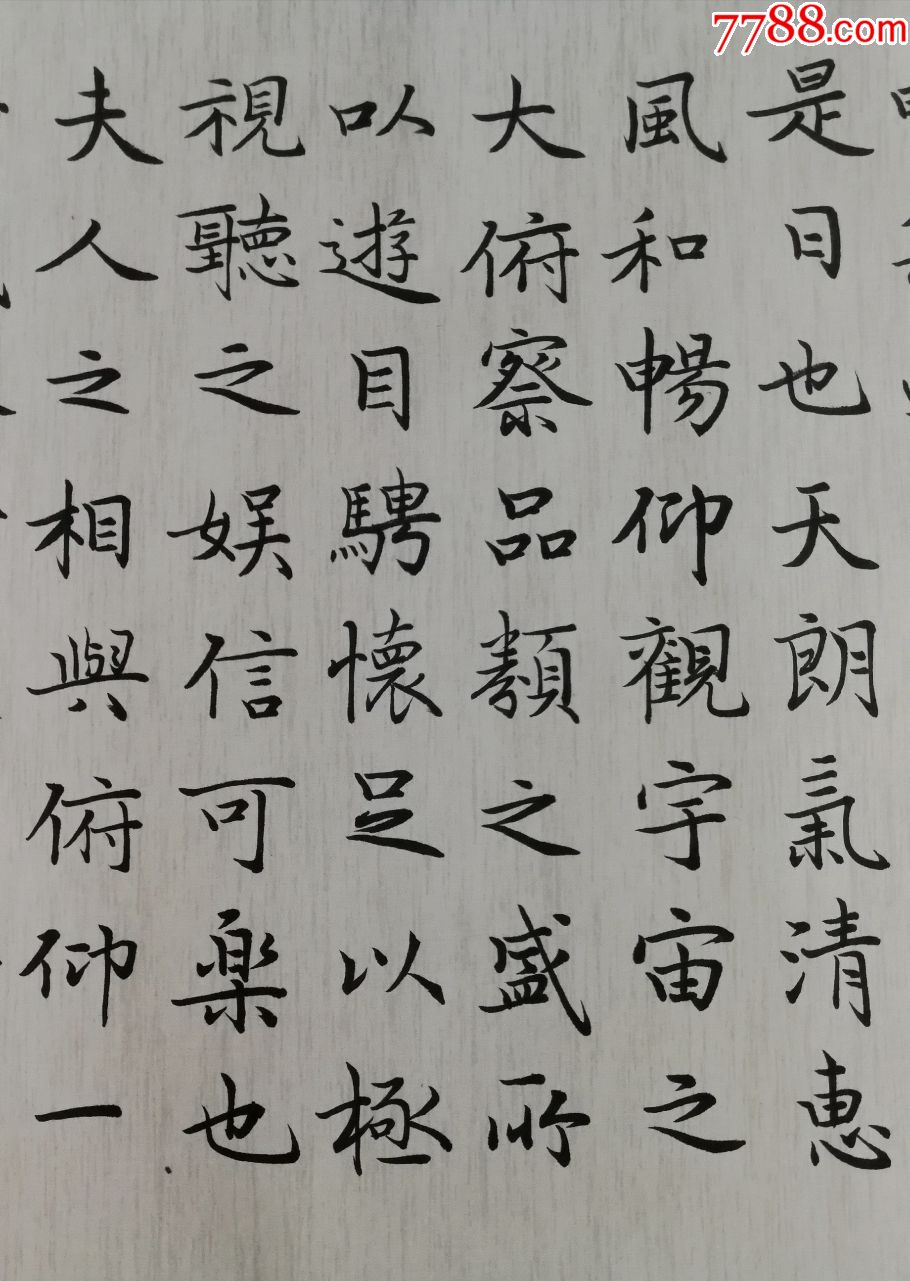 7788.com
是日也天朗氣清恵
風和暢仰觀宇宙之
大俯察品類之盛所
以遊目騁懷足以極
視聽之娱信可樂也
夫人之相與俯仰一